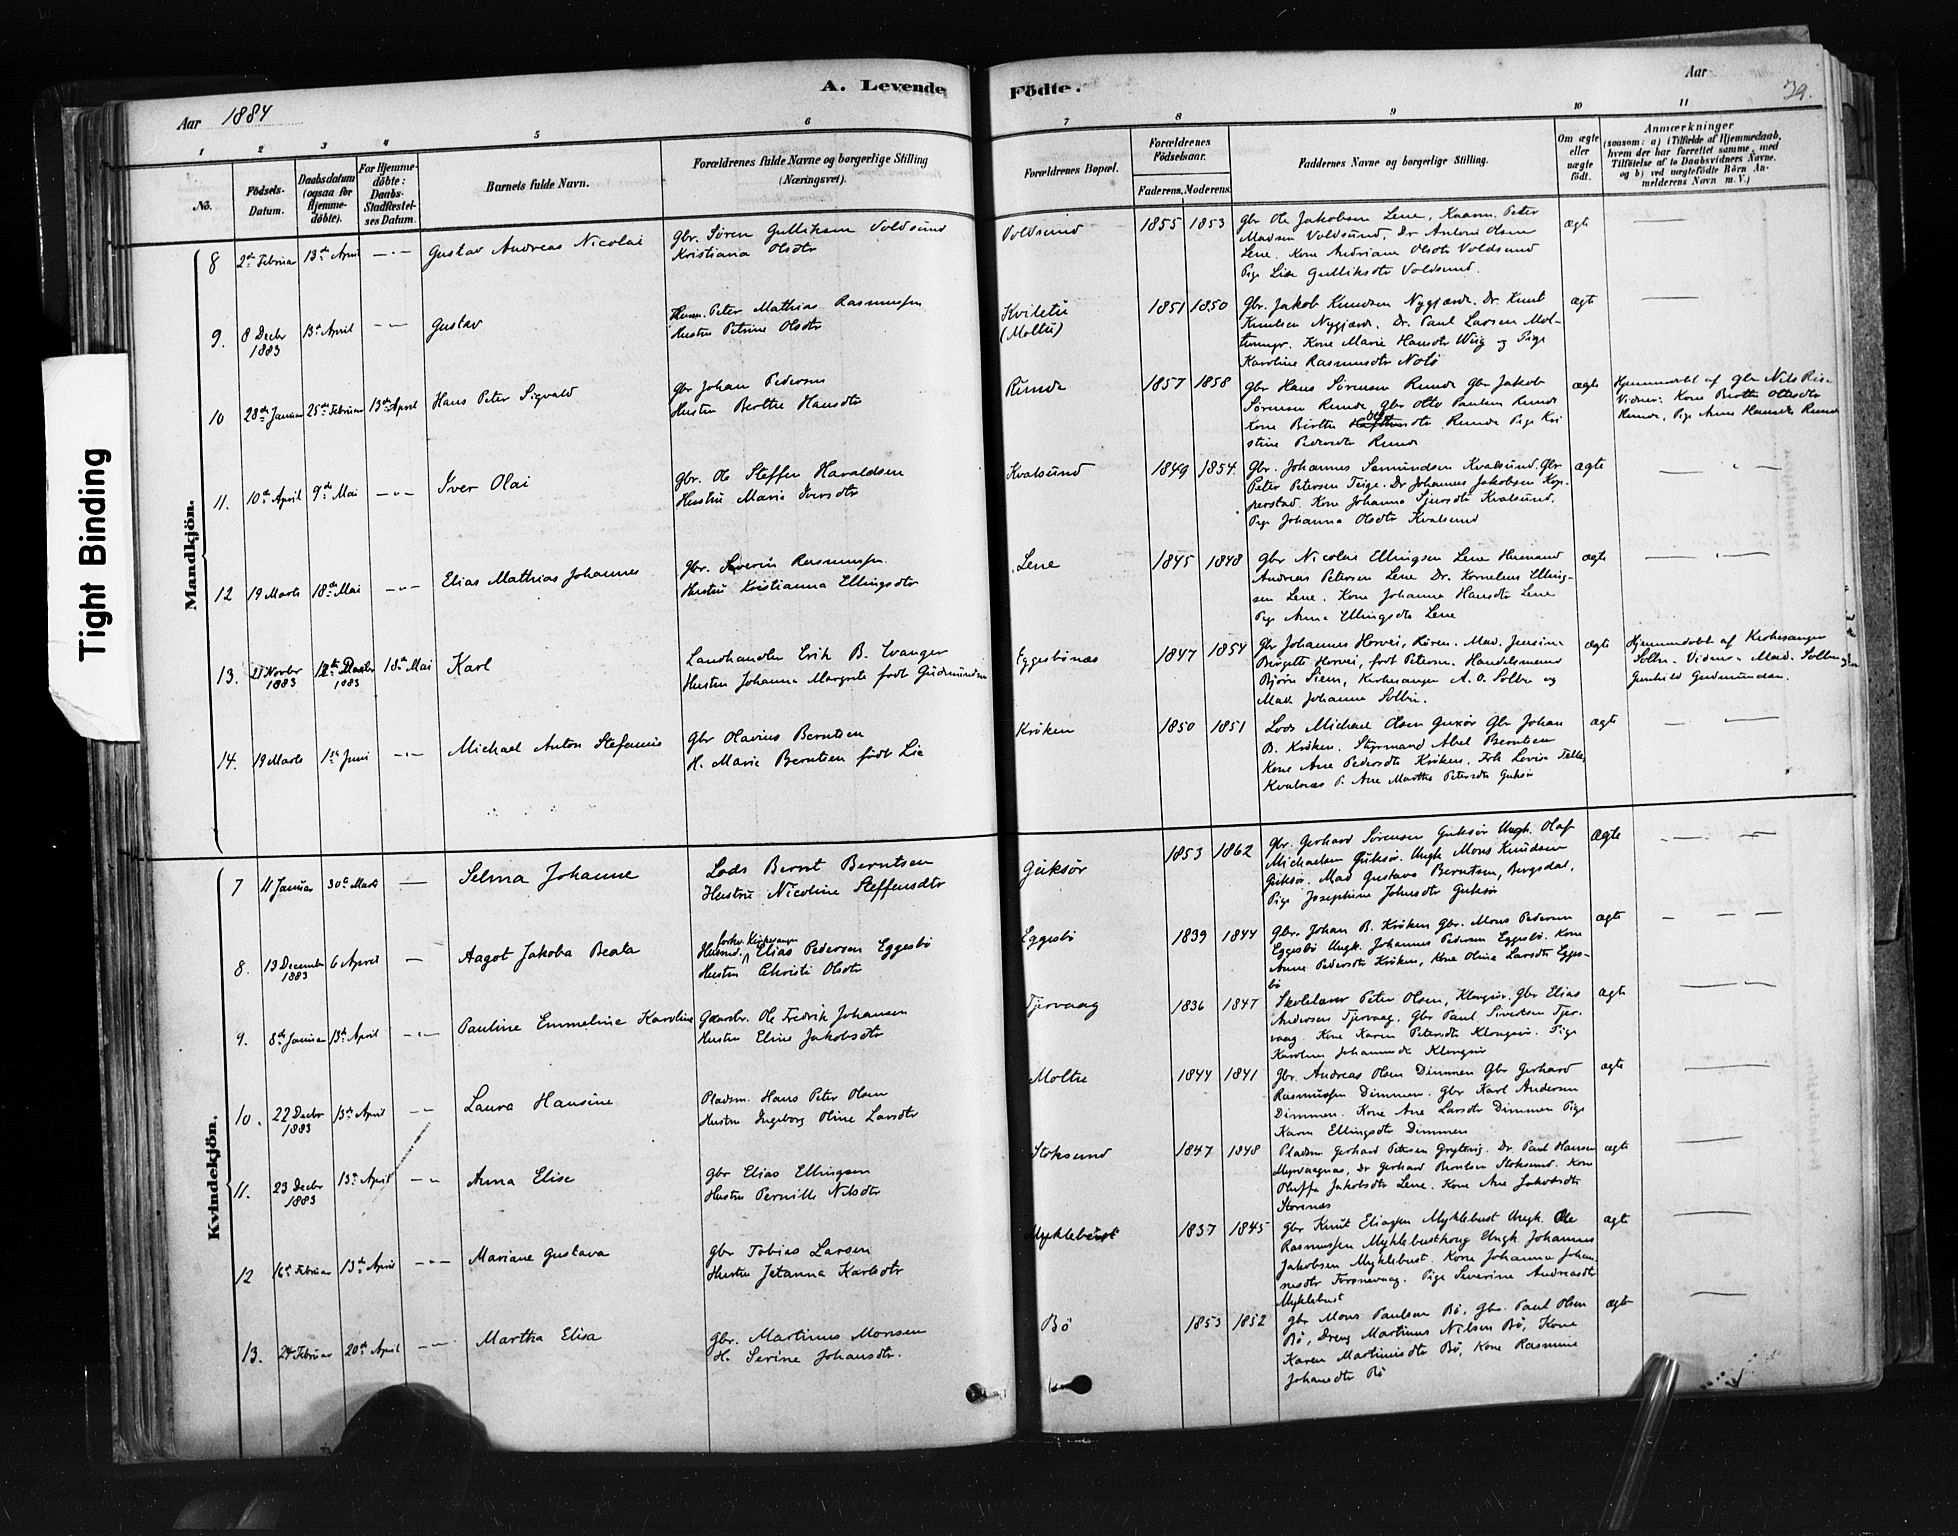 Tight Binding
A. Levende
Födte.
Aar 1884
Aar
39.
1 2 3 4 5 6
7 8 9 10 11
No.
Födsels-
Datum.
Daabsdatum
(ogsaa for
Hjemme-
döbte).
For Hjemme-
döbte:
Daabs-
Stadfæstel-
ses Datum.
Barnets fulde Navn.
Forældrenes fulde Navne og borgerlige Stilling
(Næringsvei).
Forældrenes Bopæl.
Forældrenes
Födselsaar.
Faderens. Moderens.
Faddernes Navne og borgerlige Stilling.
Om ægte
eller
uægte
födt.
Anmærkninger
(saasom: a) i Tilfælde af Hjemmedaab,
hvem der har forrettet samme, med
Tilföielse af to Daabsvidners Navne.
og b) ved uægtefödte Börn An-
melderens Navn m. V.)
Mandkjön.
8 2den Februar 13de April — „ — Gustav Andreas Nicolai
Gbr. Sören Gulliksen Voldsund
Kristiana Olsdtr
Voldsund 1855 1853
Gbr Ole Jakobsen Lene, Kaarm. Peter
Madsen Voldsund, Dr Antoni Olsen
Lene. Kone Andriane Olsdtr Voldsund
Pige Lise Gulliksdtr Voldsund.
ægte —
9. 8 Decbr
1883
13de April — „ — Gustav
Peter Mathias Rasmussen
Hustru Petrine Olsdtr
Kviletu
(Moltu)
1851 1850
Gbr. Jakob Knudsen Nygjærde. Dr. Knut
Knutsen Nygjærde. Dr. Paul Larsen Mol-
tumyr. Kone Marie Hansdtr Wiig og Pige
Karoline Rasmusdtr Notö
ægte —
10 28de Januar 25de Februar 13de April Hans Peter Sigvald
Gbr Johan Pedersen
Hustru Berthe Hansdtr
Runde 1857 1858
Gbr Hans Sörensen Runde Gbr Jakob
Sörensen Runde Gbr Otto Paulsen Runde
Kone Birthe Runde Pige Kri
stine Pedersdtr Runde
ægte
Hjemmedöbt af Gbr Nils
Vidner: Kone Birthe Ottesdtr
Runde, Pige Anne Hansdtr Runde
11. 10de April 9de Mai — „ — Iver Olai
Gbr. Ole Steffen Haraldsen
Hustru Marie Iversdtr
Kvalsund 1849 1854.
Gbr. Johannes Samundsen Kvalsund. Gbr
Peter Petersen Teige. Dr Johannes Jakobsen Kop-
perstad. Kone Johanna Sjursdtr Kvalsund.
Pige Johanna Olsdtr Kvalsund
ægte — „ —
12 19 Marts 18de Mai — „ — Elias Mathias Johannes
Gbr. Severin Rasmussen.
Hustru Kristianna Ellingsdtr
Lene 1845 1848
Gbr Nicolai Ellingsen Lene Husmand
Andreas Petersen Lene Dr. Kornelius Elling-
sen Lene. Kone Johanna Hansdtr Lene
Pige Anna Ellingsdtr Lene
ægte — „ —
13. 21 Novbr
1883
12te Decbr
1883
18de Mai Karl
Landhandler Erik B. Wanger
Hustru Johanna Margrete födt Gudmundsen
Eggesbönæs 1847 1854
Gbr Johannes Horvei, Lören. Mad. Jensine
Birgitte Horvei, födt Peterson. Handelsmand
Björn Siem, Kirkesanger A. O. Solbu og
Mad. Johanne Solbu.
ægte
Hjemmedöbt af Kirkesanger
Solbu. Vidner: Mad. Solbu og
Gunhild Gudmundsen.
14. 19 Marts 1ste Juni — „ — Michael Anton Stefanus
Gbr Olavius Berntsen
H. Marie Berntsen födt Lie
Kröken 1850 1851
Lods Michael Olsen Guxör Gbr Johan
B. Kröken. Styrmand Abel Berntsen
Kone Ane Pedersdtr Kröken. Frk Lovise
Kvalnæs P. Ane Marthe Petersdtr Guksör
ægte — —
Kvindekjön.
7 11 Januar 30te Marts — Selma Johanne
Lods Bernt Berntsen
Hustru Nicoline Steffensdtr
Guksör 1853 1862
Gbr. Gerhard Sörensen Guksör Ungk. Olaf
Michaelsen Guksör. Ungk Mons Knudsen
Guksör. Mad Gustava Berntsen, Bergsdal,
Pige Josephine Johnsdtr Guksör
Ægte — — —
8. 13 December
1883
6 April — Aagot Jakoba Beata
forhv. Kirkesanger
Husmd. Elias Pedersen Eggesbö
Hustru Christi Olsdtr
Eggesbö 1839 1844
Gbr. Johan B. Kröken Gbr. Mons Pedersen
Eggesbö Ungk. Johannes Pedersen Eggesbö. Kone
Anne Pedersdtr Kröken, Kone Oline Larsdtr Egges-
bö
ægte — — —
9. 8de Januar 13de April — „ — Pauline Emmeline Karoline
Gaardbr. Ole Fredrik Johansen
Hustru Eline Jakobsdtr
Tjervaag 1836 1847
Skolelærer Peter Olsen, Klongsör. Gbr Elias
Andersen Tjervaag, Gbr Paul Sivertsen Tjer-
vaag. Kone Karen Petersdtr Klongsör. Pige
Karoline Johannesdtr Klongsör
ægte — —
10. 22 Decbr
1883
13de April — „ — Laura Hansine
Pladsm. Hans Peter Olsen
Hustru Ingeborg Oline Larsdtr
Moltu 1844 1841
Gbr. Andreas Olsen Dimmen Gbr Gerhard
Rasmussen Dimmen. Gbr Karl Andersen
Dimmen. Kone Ane Larsdtr Dimmen Pige
Karen Ellingsdtr Dimmen
ægte —
11. 23 Decbr
1883
13de April — „ Anna Elise
Gbr Elias Ellingsen
Hustru Pernille Nilsdtr
Stoksund 1847 1848
Pladsm Gerhard Petersen Grytting. Dr. Paul Hansen
Myrvaagnæs, Dr Gerhard Berntsen Stoksund. Kone
Oluffa Jakobsdtr Lene. Kone Ane Jakobsdtr
Storenæs
ægte —
12 16de Februar 13de April — „ — Mariane Gustava
Gbr Tobias Larsen
Hustru Jetanna Karlsdtr
Myklebust 1837 1845
Gbr Knut Eliassen Myklebust Ungk. Ole
Rasmussen Myklebusthoug Ungk Johannes
Jakobsen Myklebust. Kone Johanna Johan-
nesdtr Torsnevaag. Pige Severine Andreasdtr
Myklebust
ægte —
13. 24 Februar 20de April — „ — Martha Elisa
Gbr. Martinus Monsen
H. Serine Johansdtr.
Bö 1853 1852
Gbr Mons Paulsen Bö, Gbr. Paul Olsen
Bö, Dreng Martinus Nilsen Bö, Kone
Karen Martinusdtr Bö, Kone Rasmine
Johansdtr Bö
ægte —